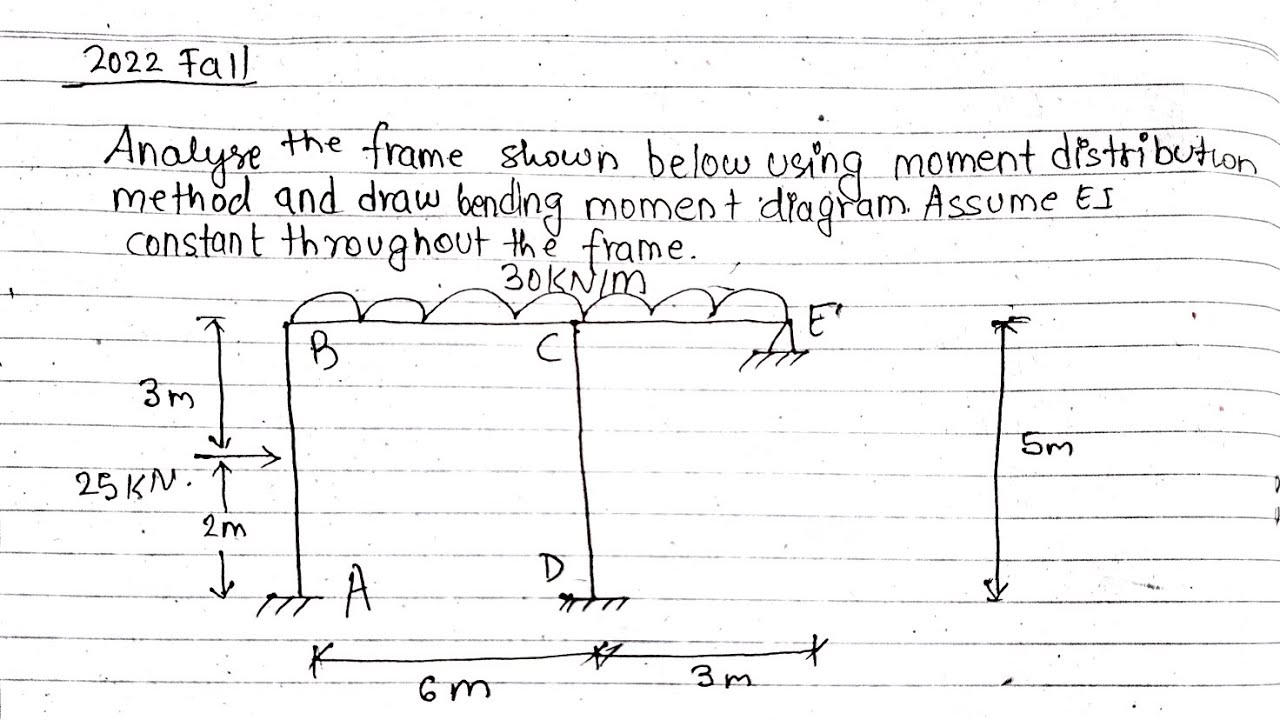 2022 Fall
Analyse the frame shown below using moment distribution
method and draw bending moment diagram. Assume EI
constant throughout the frame.
30KN/m
B
C
E
3m
5m
25KN.
2m
D
A
6m
3m